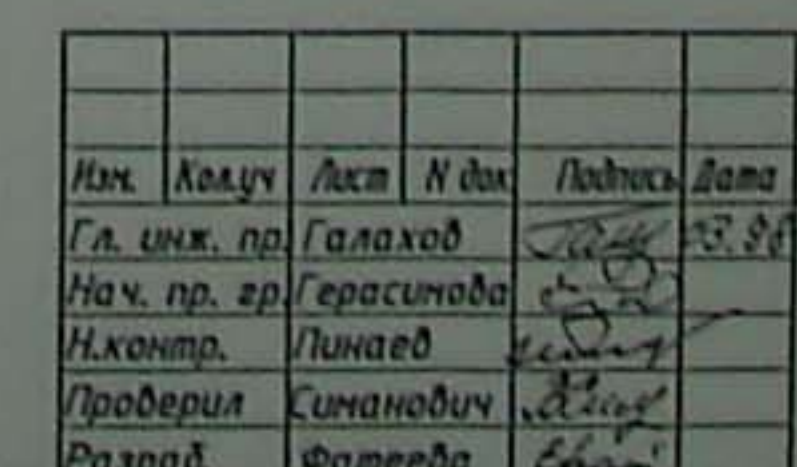 Изм. Кол.уч Лист N док Подпись Дата
Гл. инж. пр. Галахов 03.98
Нач. пр. гр. Герасимова
Н.контр. Пинаев
Проверил Симанович
Разраб. Фатеева